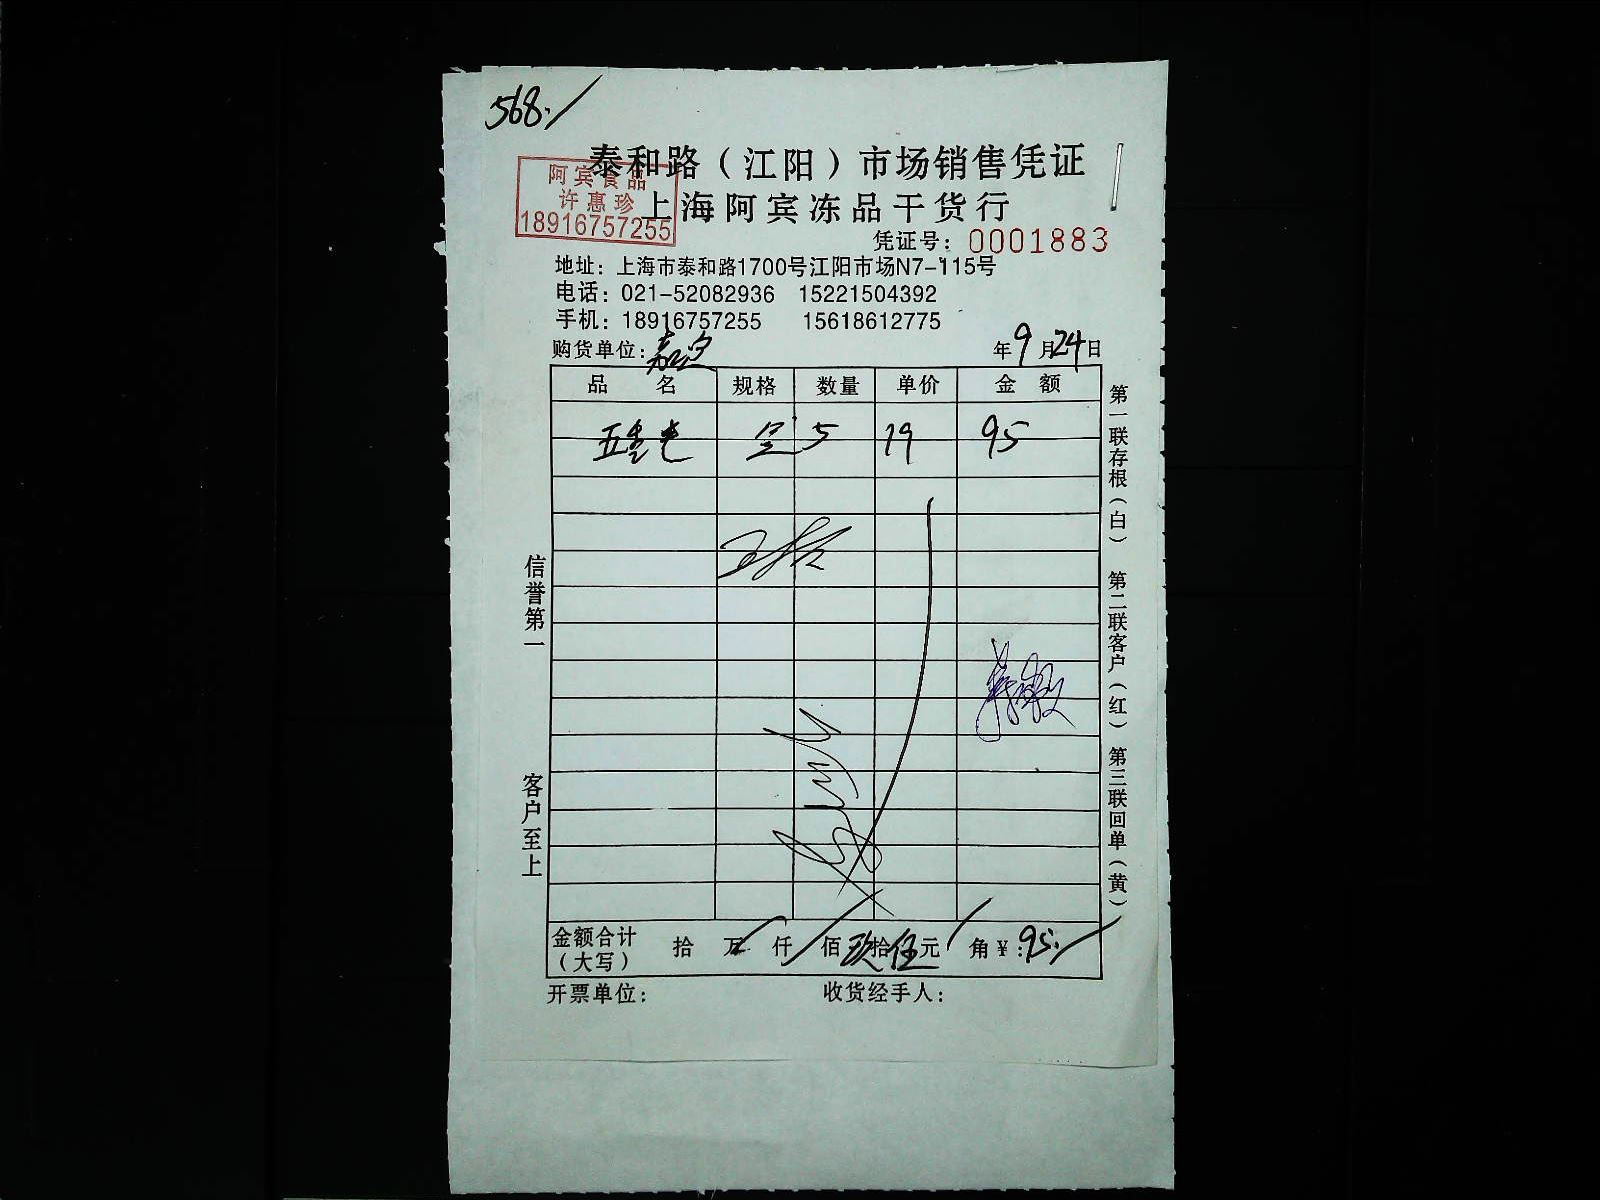 568.
泰和路（江阳）市场销售凭证
阿宾食品
许惠珍
18916757255
上海阿宾冻品干货行
凭证号：0001883
地址：上海市泰和路1700号江阳市场N7-115号
电话：021-52082936 15221504392
手机：18916757255 15618612775
购货单位：嘉定 年9月24日
品名 规格 数量 单价 金额
5 19 95
信誉第一
客户至上
第一联存根（白） 第二联客户（红） 第三联回单（黄）
金额合计（大写） 拾 万 仟 佰 玖拾伍元 角 ¥：95.
开票单位： 收货经手人：